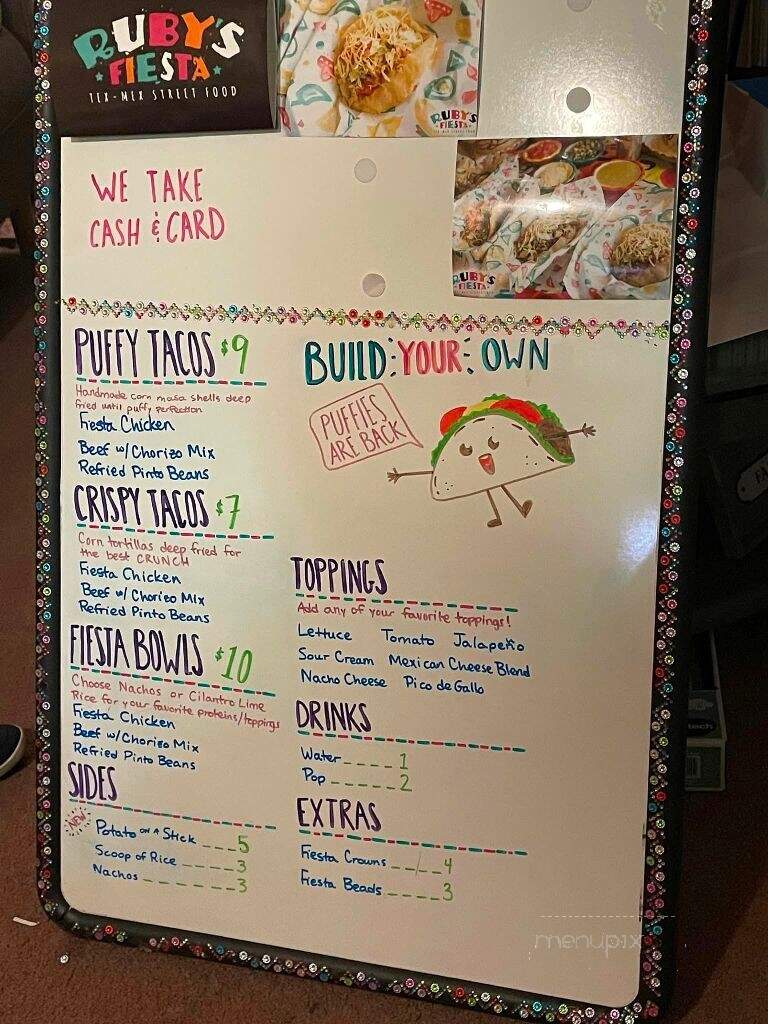 RUBY'S
FIESTA
TEX-MEX STREET FOOD
RUBY'S
FIESTA
WE TAKE
CASH & CARD
RUBY'S
FIESTA
PUFFY TACOS $9
Handmade corn masa shells deep
fried until puffy perfection
Fiesta Chicken
Beef w/ Chorizo Mix
Refried Pinto Beans
CRISPY TACOS $7
Corn tortillas deep fried for
the best CRUNCH
Fiesta Chicken
Beef w/ Chorizo Mix
Refried Pinto Beans
FIESTA BOWLS $10
Choose Nachos or Cilantro Lime
Rice for your favorite proteins/toppings
Fiesta Chicken
Beef w/ Chorizo Mix
Refried Pinto Beans
SIDES
NEW
Potato on a Stick ___5
Scoop of Rice ____3
Nachos ______3
BUILD YOUR OWN
PUFFIES
ARE BACK
TOPPINGS
Add any of your favorite toppings!
Lettuce Tomato Jalapeño
Sour Cream Mexican Cheese Blend
Nacho Cheese Pico de Gallo
DRINKS
Water ____1
Pop _____2
EXTRAS
Fiesta Crowns ____4
Fiesta Beads ____3
menupix